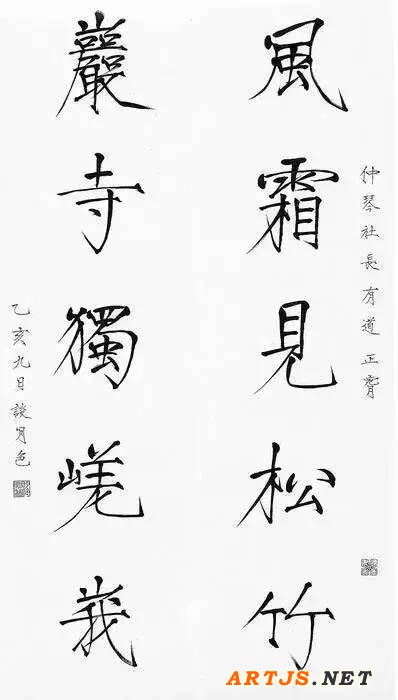 仲琴社長有道 正
風霜見松竹
巖寺獨嵯峩
乙亥九日談月色
ARTJS.NET